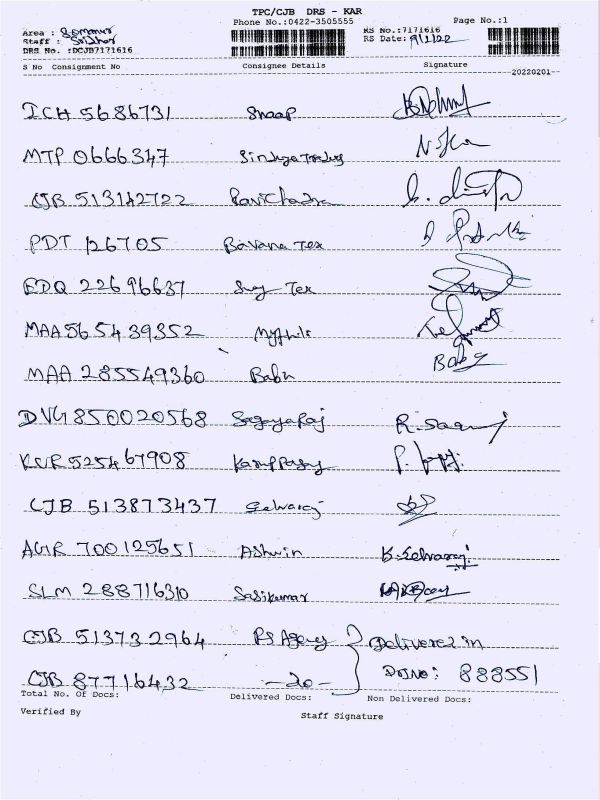 TPC/CJB DRS - KAR
Phone No.:0422-3505555 Page No.:1
Area :
Staff : Sridhar RS No.:7171616
DRS No. :DCJB7171616 RS Date: 9/2/22
S No Consignment No Consignee Details Signature
20220201
ICH 5686731 Snaap
MTP 0666347
CJB 513142722 Ravichadra
PDT 126705 Bavana Tex
EDQ 22696637 Tex
MAA 565439352 Mythili
MAA 285549360 Babu Babu
DVG 850020568 Sagayaraj R. Sagaj
KUR 525467908 Karuppasamy
CJB 513873437 Selvaraj
AGR 700125651 Ashwin K. Selvaraj.
SLM 288716310 Sasikumar
CJB 513732964 RS Agency Delivered in
CJB 87716432 - do - DRS No: 888551
Total No. Of Docs: Delivered Docs: Non Delivered Docs:
Verified By Staff Signature